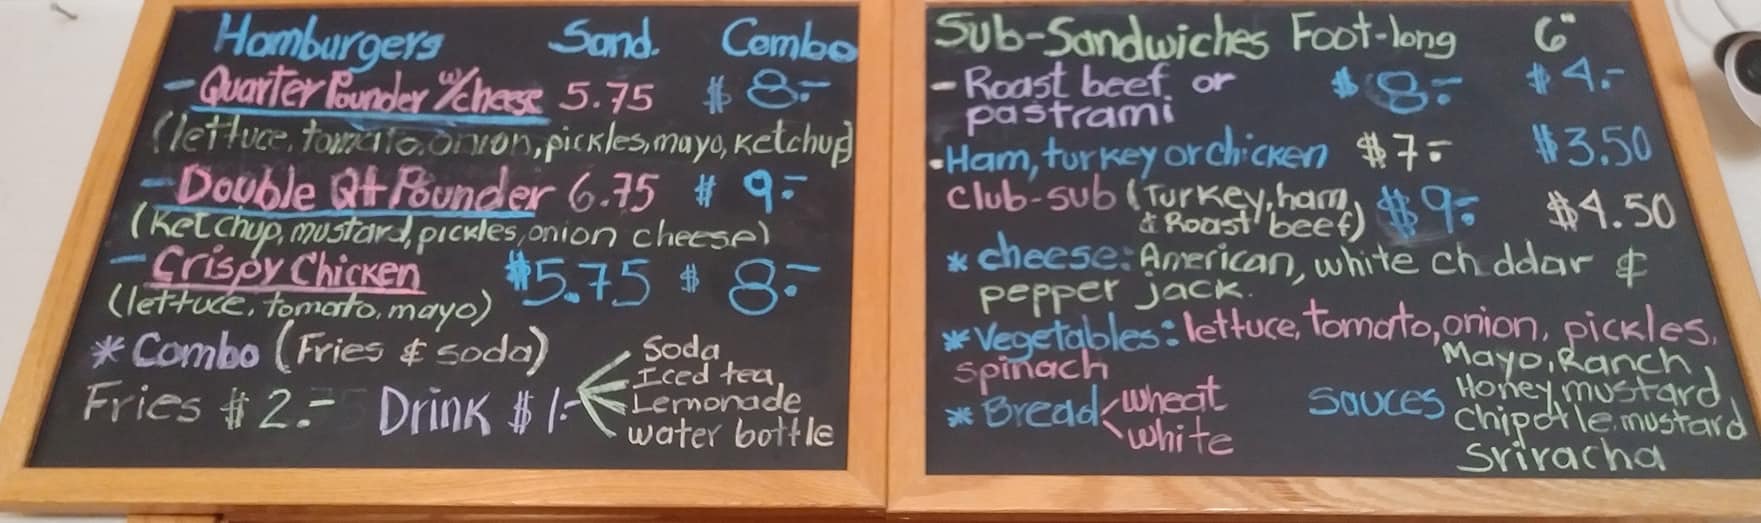 Hamburgers Sand. Combo
- Quarter Pounder w/cheese 5.75 $ 8.-
(lettuce, tomato, onion, pickles, mayo, ketchup)
- Double Qt Pounder 6.75 $ 9.-
(Ketchup, mustard, pickles, onion cheese)
- Crispy Chicken $5.75 $ 8.-
(lettuce, tomato, mayo)
* Combo (Fries & soda)
Fries $ 2.- Drink $ 1.-
Soda
Iced tea,
Lemonade
water bottle
Sub-Sandwiches Foot-long 6"
- Roast beef or $ 8.- $ 4.-
pastrami
• Ham, turkey or chicken $ 7.- $3.50
Club-sub (Turkey, ham, $9.- $4.50
& Roast beef)
* cheese: American, white ch ddar &
pepper jack.
* Vegetables: lettuce, tomato, onion, pickles,
spinach
* Bread wheat
white
Sauces
Mayo, Ranch,
Honey mustard
Chipotle mustard
Sriracha